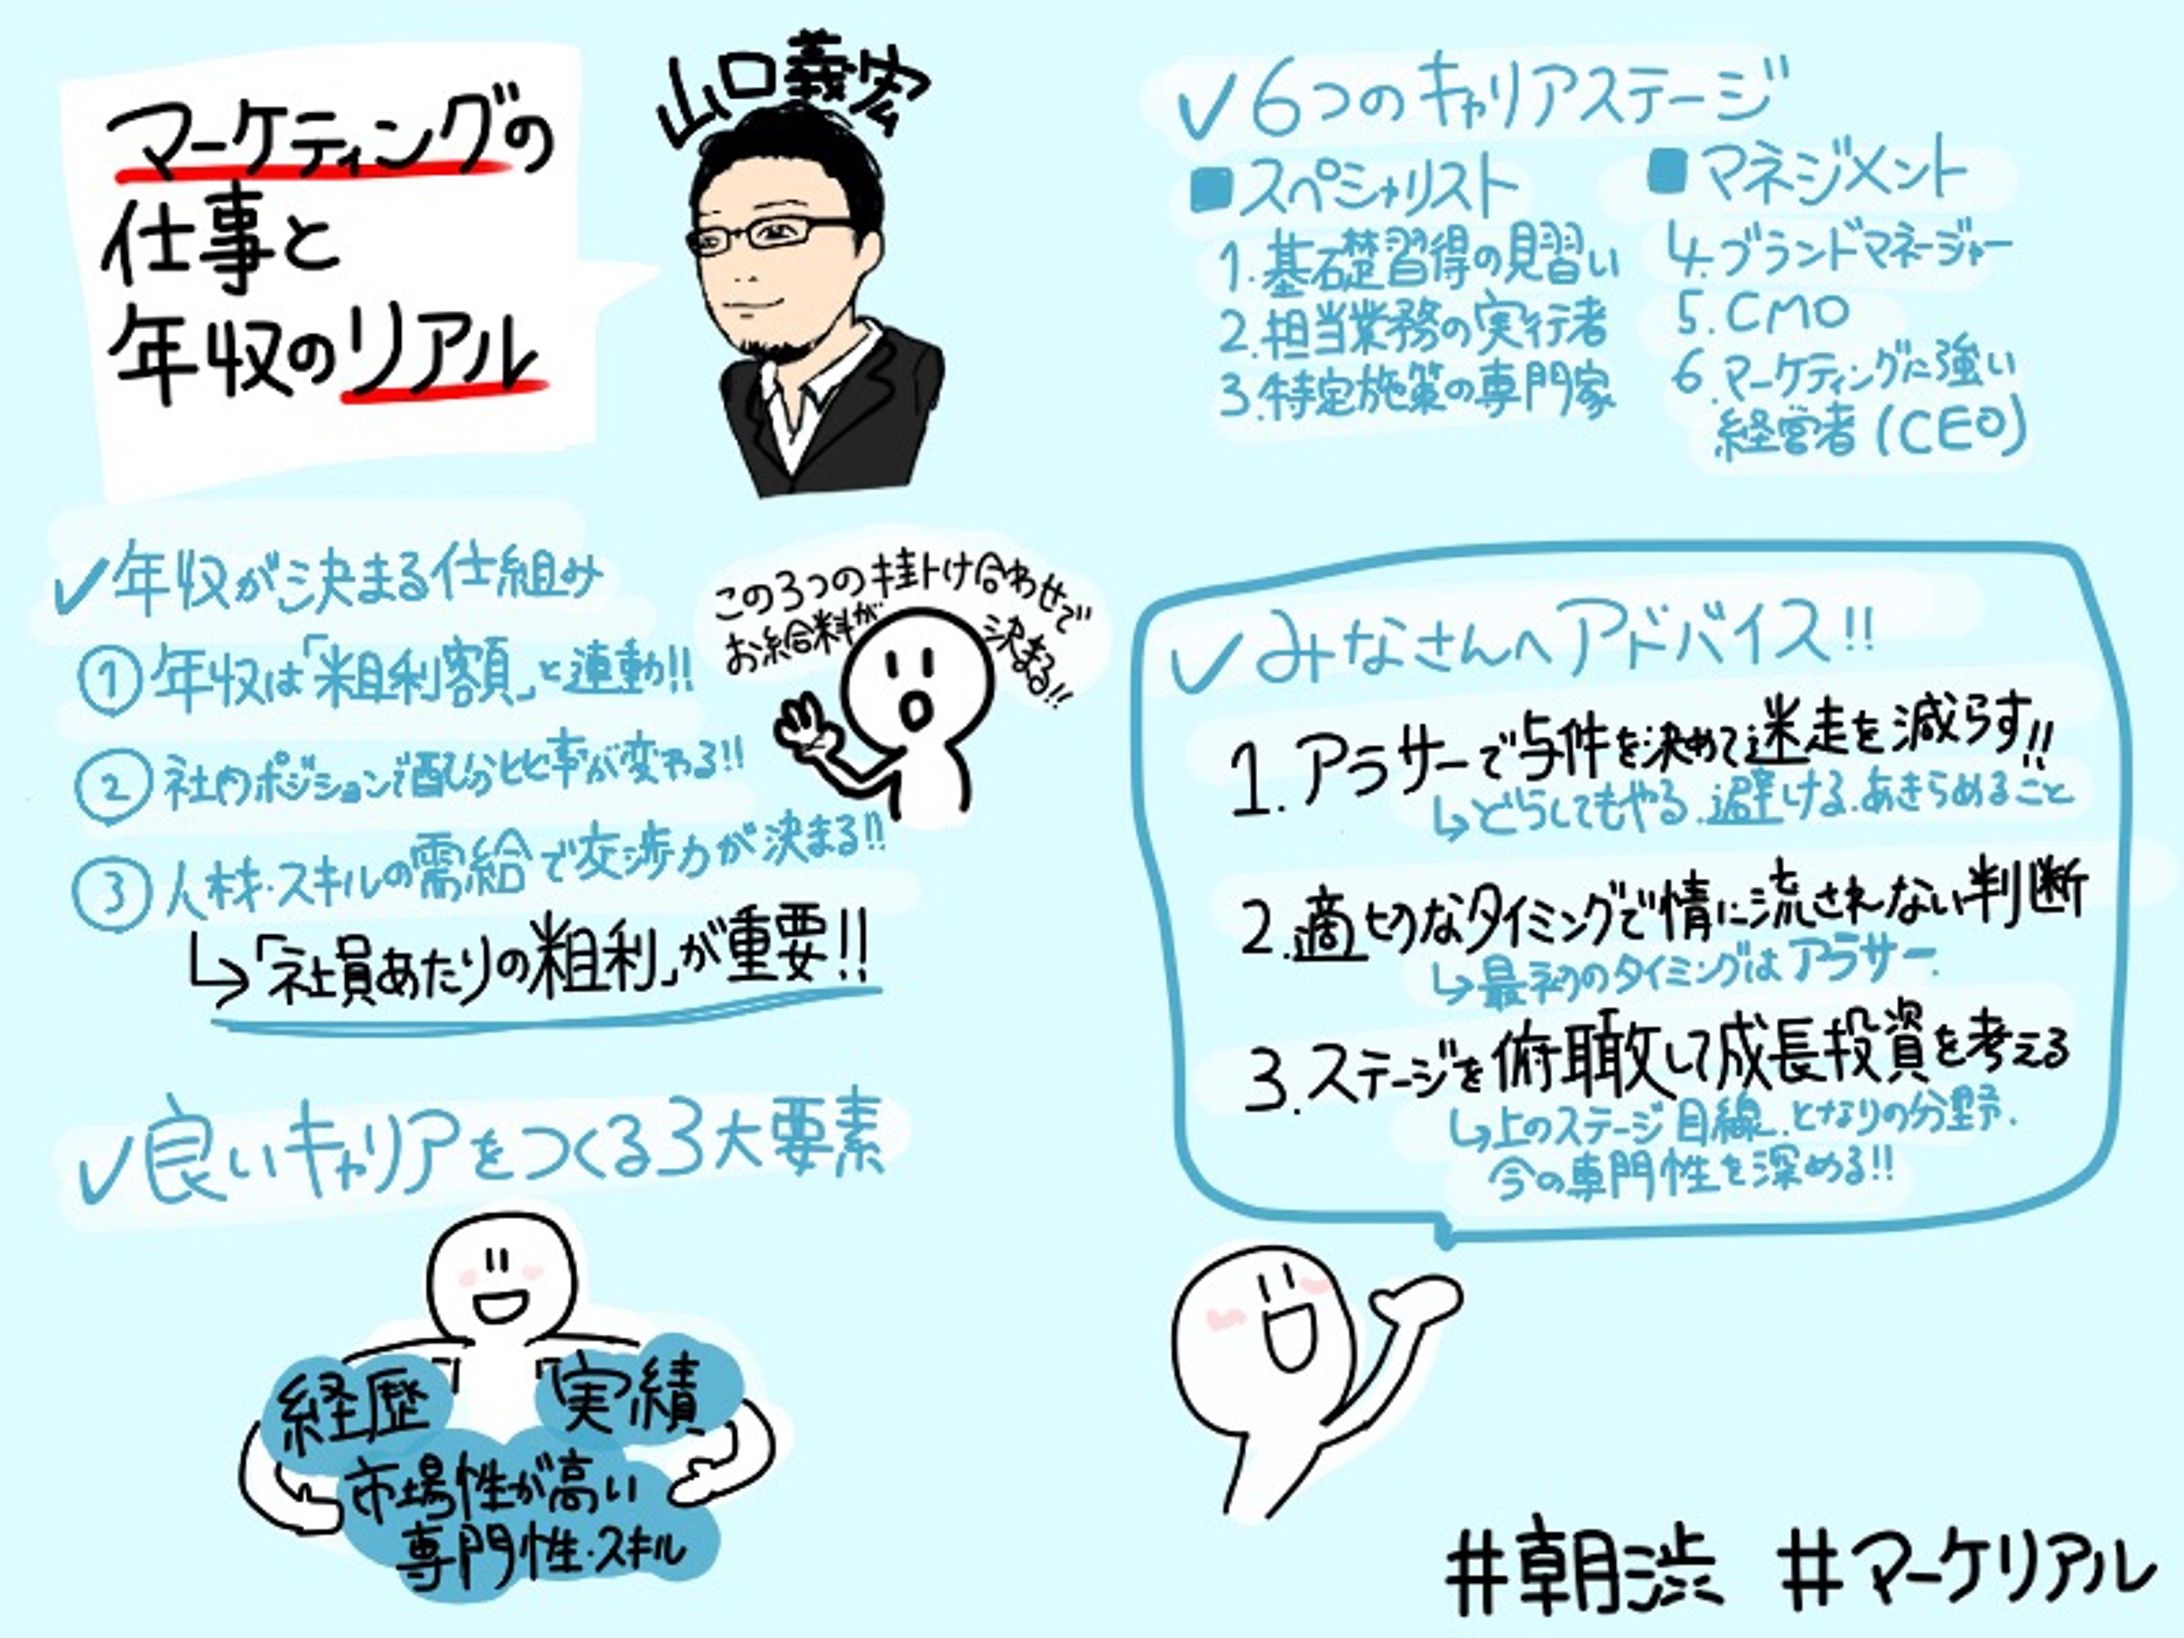 マーケティングの
仕事と
年収のリアル
山口義宏
✓年収が決まる仕組み
①年収は「粗利額」と連動!!
②社内ポジションで配分比率が変わる!!
③人材・スキルの需給で交渉力が決まる!!
↳「社員あたりの粗利」が重要!!
この3つの掛け合わせで
お給料が
決まる!!
✓良いキャリアをつくる3大要素
経歴
実績
市場性が高い
専門性・スキル
✓6つのキャリアステージ
■スペシャリスト
1.基礎習得の見習い
2.担当業務の実行者
3.特定施策の専門家
■マネジメント
4.ブランドマネージャー
5.CMO
6.マーケティングに強い
経営者(CEO)
✓みなさんへアドバイス!!
1.アラサーで与件を決めて迷走を減らす!!
↳どうしてもやる.避ける.あきらめること
2.適切なタイミングで情に流されない判断
↳最初のタイミングはアラサー.
3.ステージを俯瞰して成長投資を考える
↳上のステージ目線.となりの分野.
今の専門性を深める!!
#朝渋 #マーケリアル